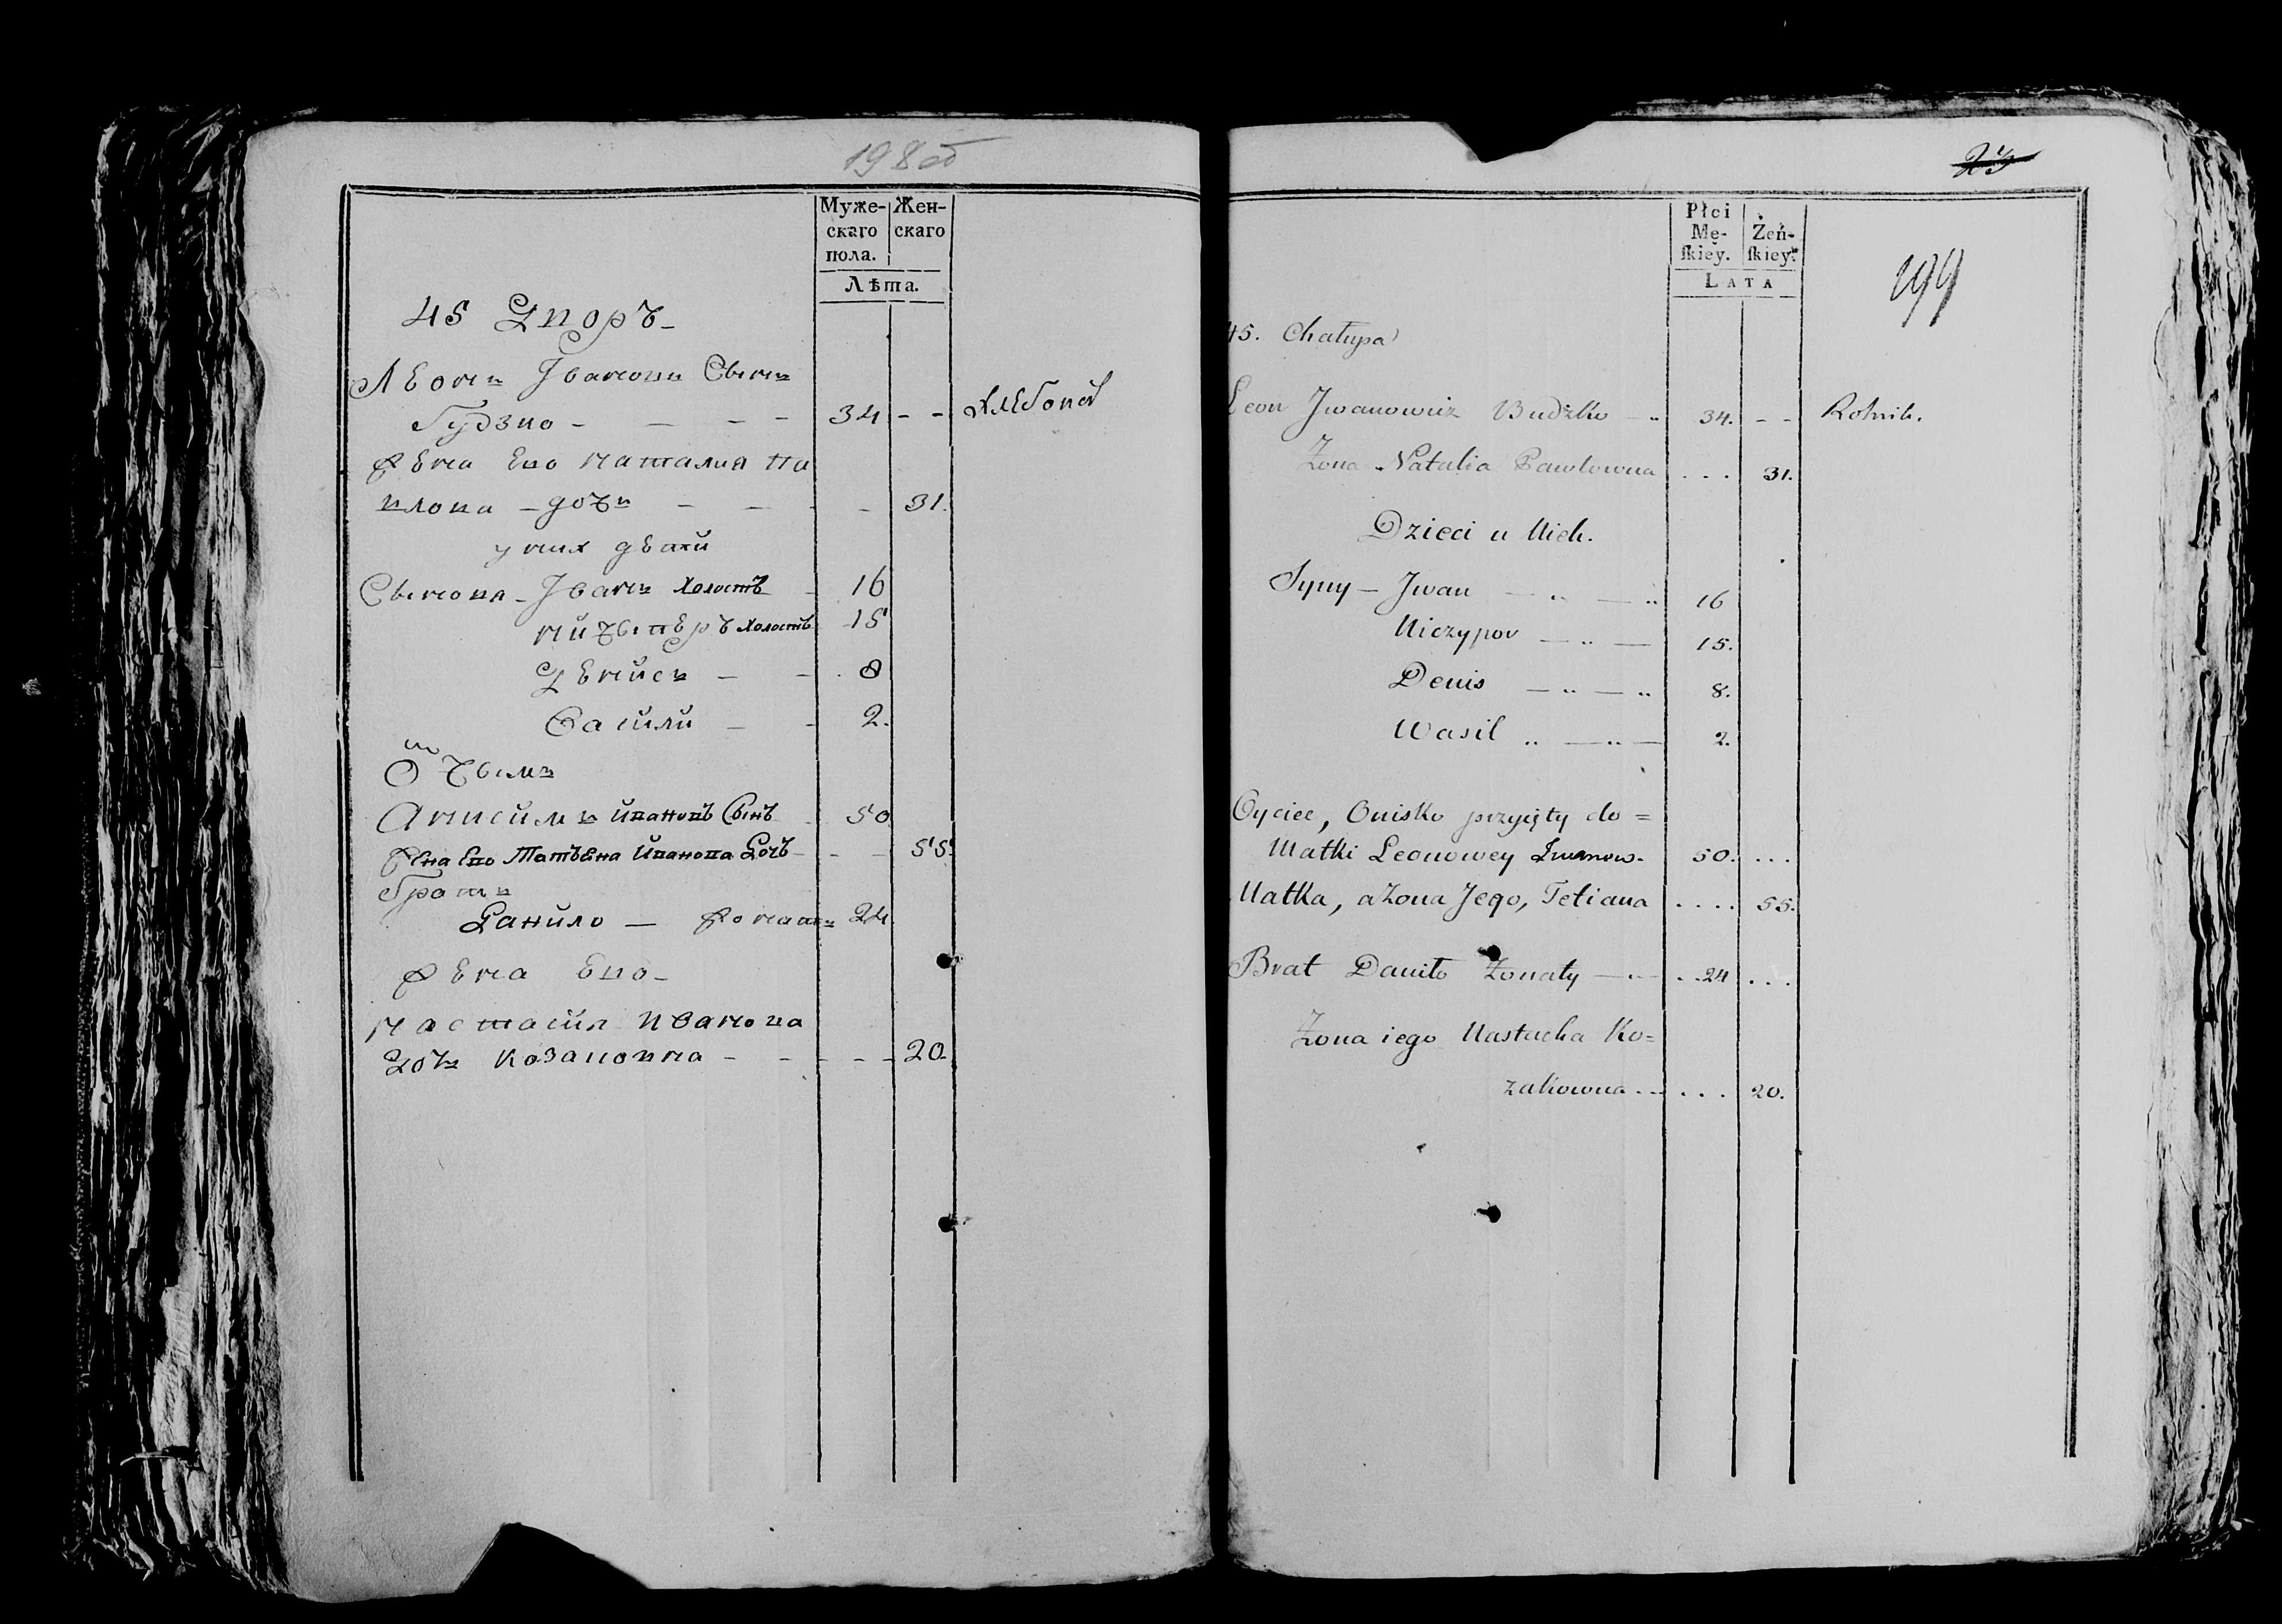 198об
Муже-
скаго
пола.
Жен-
скаго
Лѣта.
45 Дворъ
Левонъ Ивановъ Сынъ
Будзко - 34 - - Хлебопа
Жена Ево Наталия Па
влова - дочъ - 31.
у них дѣти
Сынова - Иванъ холостъ 16
Ничыперъ холостъ 15
Денисъ - 8
Васили - 2.
Отчымъ
Анисимъ Ивановъ Сынъ 50
Жена Ево Татъяна Иванова Дочъ - 55.
Братъ
Данило - Жонатъ 24.
Жена Ево -
Настасия Иванова
Дочъ Козаковна - 20.
199
Płci
Mę-
skiey.
Żeń-
skiey.
LATA
45. Chałupa
Leon Jwanowicz Budźko 34. - - Rolnik.
Żona Natalia Pawłowna . . . 31.
Dzieci u Nich.
Syny - Jwan 16
Niczypor 15.
Denis 8.
Wasil 2.
Oyciec, Onisko przyięty do =
Matki Leonowey Iwanow. 50. . . .
Matka, a Żona Jego, Tetiana . . . . 55.
Brat Daniło Żonaty 24 . . .
Żona iego Nastucha Ko=
zakowna . . . 20.